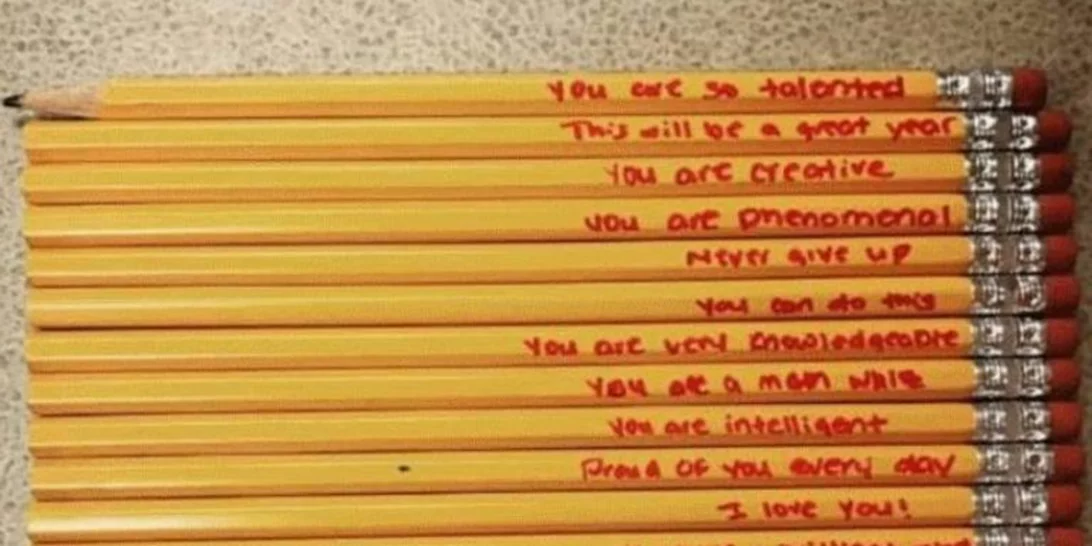 You are so talented
This will be a great year
You are creative
you are phenomenal
Never give up
You can do this
You are very knowledgeable
You are a math whiz
You are intelligent
Proud of you every day
I love you!